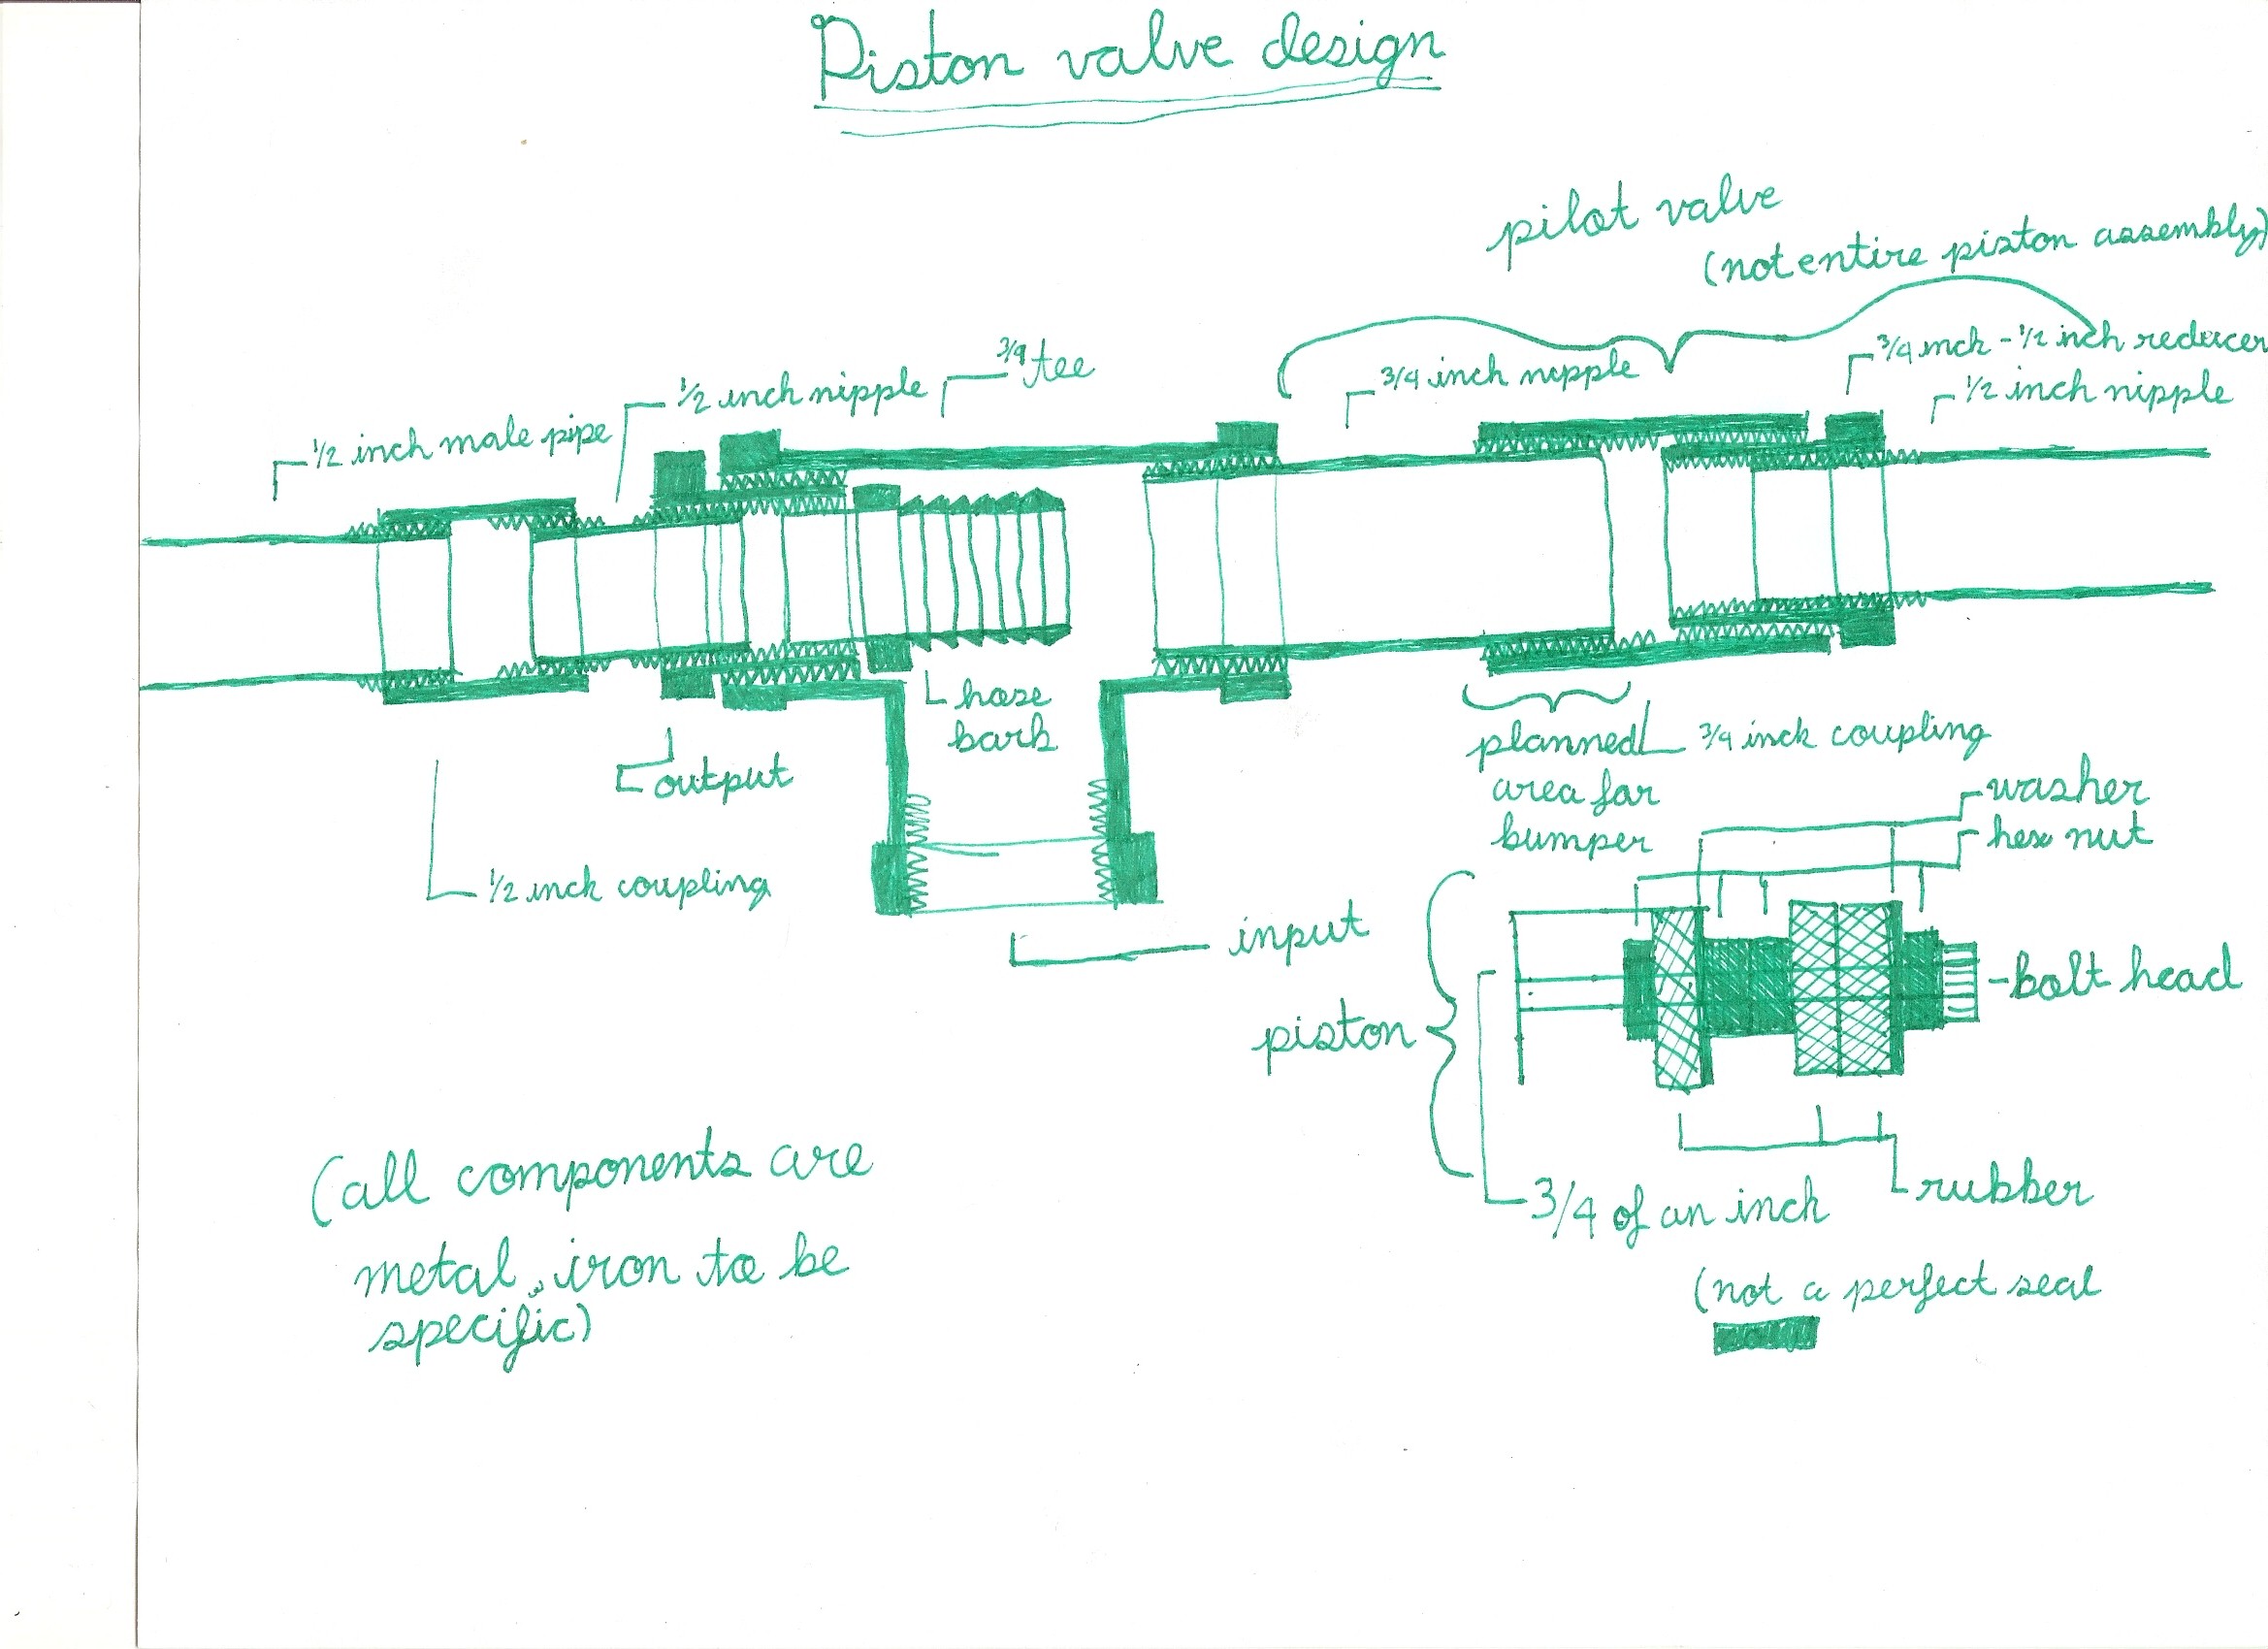 Piston valve design
pilot valve
(not entire piston assembly)
1/2 inch male pipe
1/2 inch nipple
3/4 tee
3/4 inch nipple
3/4 inch - 1/2 inch reducer
1/2 inch nipple
hose
barb
output
1/2 inch coupling
input
planned
area for
bumper
3/4 inch coupling
washer
hex nut
bolt head
piston
rubber
3/4 of an inch
(not a perfect seal
(all components are
metal, iron to be
specific)